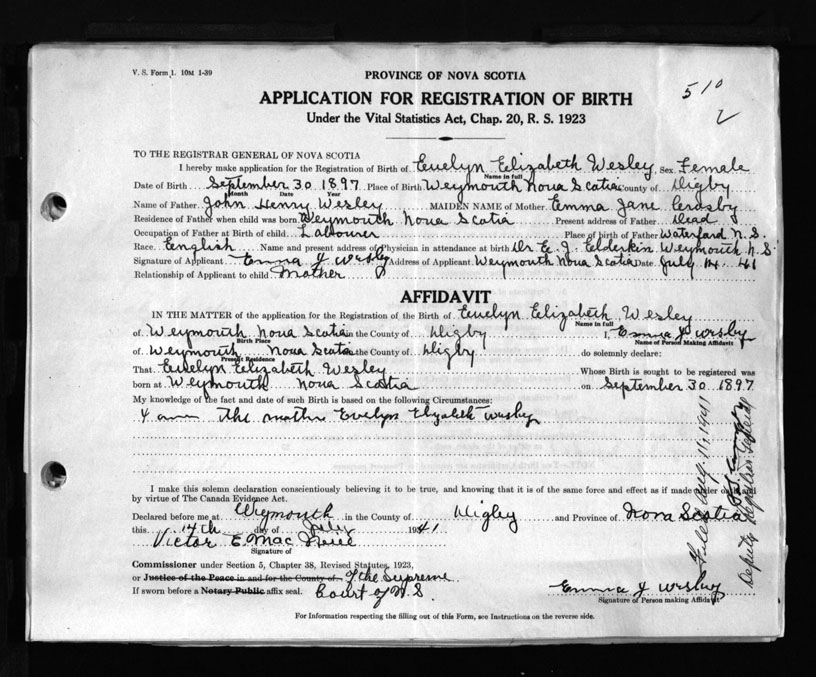 V. S. Form 1. 10M 1-39
PROVINCE OF NOVA SCOTIA
510
APPLICATION FOR REGISTRATION OF BIRTH
Under the Vital Statistics Act, Chap. 20, R. S. 1923
TO THE REGISTRAR GENERAL OF NOVA SCOTIA
I hereby make application for the Registration of Birth of Evelyn Elizabeth Wesley Sex Female
Name in full
Date of Birth September 30 1897 Place of Birth Weymouth Nova Scotia County of Digby
Month Date Year
Name of Father John Henry Wesley MAIDEN NAME of Mother Emma Jane Crosby
Residence of Father when child was born Weymouth Nova Scotia Present address of Father Dead
Occupation of Father at Birth of child Labourer Place of birth of Father Waterford N.S.
Race English Name and present address of Physician in attendance at birth Dr E. J. Elderkin Weymouth N.S.
Signature of Applicant Emma J Wesley Address of Applicant Weymouth Nova Scotia Date July 14 41
Relationship of Applicant to child Mother
AFFIDAVIT
IN THE MATTER of the application for the Registration of the Birth of Evelyn Elizabeth Wesley
Name in full
of Weymouth Nova Scotia in the County of Digby I, Emma J Wesley
Birth Place Name of Person Making Affidavit
of Weymouth Nova Scotia in the County of Digby do solemnly declare:
Present Residence
That Evelyn Elizabeth Wesley Whose Birth is sought to be registered was
born at Weymouth Nova Scotia on September 30 1897
My knowledge of the fact and date of such Birth is based on the following Circumstances:
I am the mother Evelyn Elyzabeth Wesley
I make this solemn declaration conscientiously believing it to be true, and knowing that it is of the same force and effect as if made under oath and
by virtue of The Canada Evidence Act.
Declared before me at Weymouth in the County of Digby and Province of Nova Scotia
this 14th day of July 1941
Victor E. Mac Neill
Signature of
Commissioner under Section 5, Chapter 38, Revised Statutes, 1923,
or Justice of the Peace in and for the County of Of the Supreme
If sworn before a Notary Public affix seal. Court of N S.
Emma J Wesley
Signature of Person making Affidavit
For Information respecting the filling out of this Form, see Instructions on the reverse side.
Filed Aug. 11, 1941
Deputy Registrar General